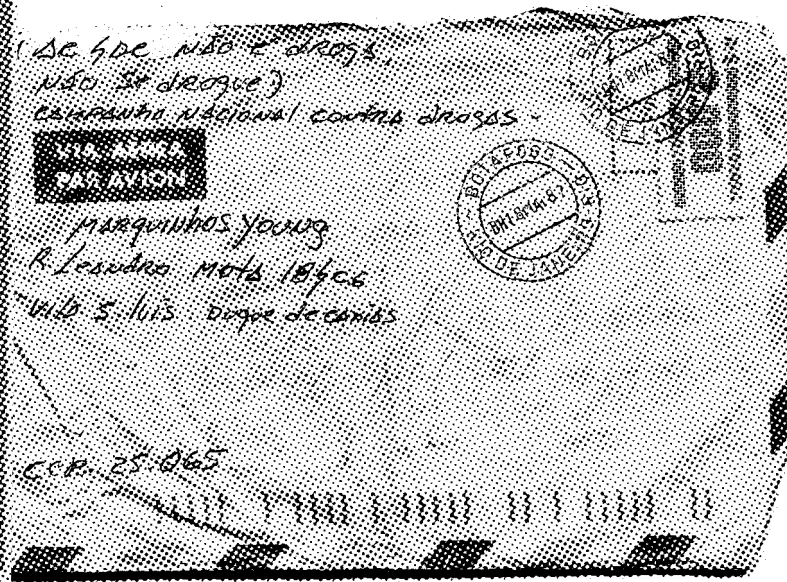 (de que não é droga,
não se drogue)
campanha nacional contra drogas -
VIA AEREA
PAR AVION
BOTAFOGO - RIO DE JANEIRO
Marquinhos Young
R Leandro Mota
Vila S. Luis Duque de caxias
CEP. 25.065